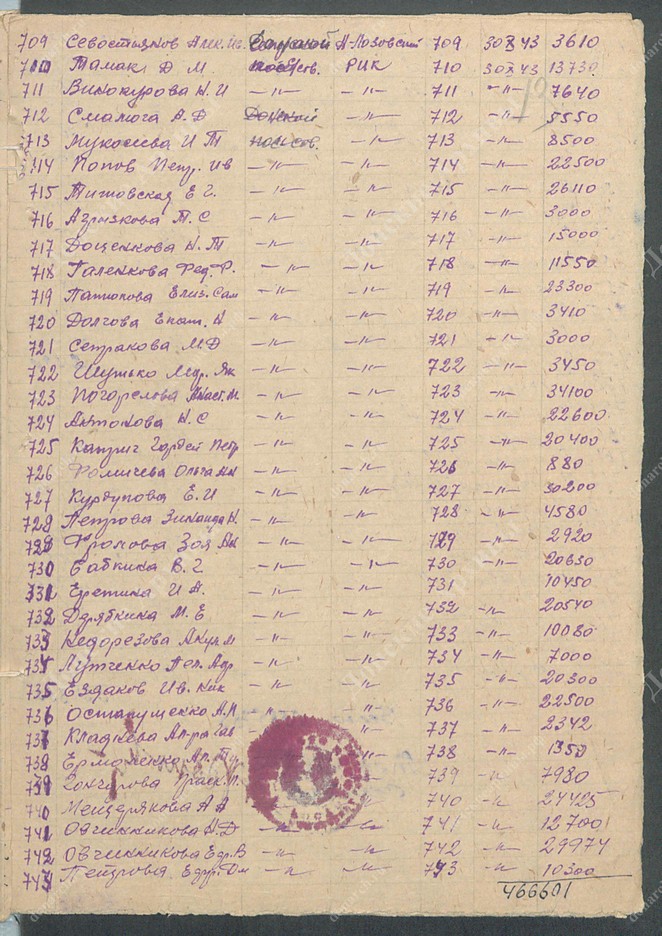 709 Севостьянов Алек. Ив. Донской Н-Лозовский 709 30 X 43 3610
710 Тамак Д М. посел сов. РИК 710 30 X 43 13730
711 Винокурова Н. И —〃— —〃— 711 —〃— 7640
712 Смалюга А. Д Донской —〃— 712 —〃— 5550
713 Мукосеева И Т пос сов. —〃— 713 —〃— 8500
714 Попов Петр. Ив —〃— —〃— 714 —〃— 22500
715 Титовская Е Г. —〃— —〃— 715 —〃— 26110
716 Т. С —〃— —〃— 716 —〃— 3000
717 Доценкова Н. Т —〃— —〃— 717 —〃— 15000
718 Галенкова Фед. Ф. —〃— —〃— 718 —〃— 11550
719 Елиз. Сам —〃— —〃— 719 —〃— 23300
720 Долгова Екат. Н —〃— —〃— 720 —〃— 3410
721 Сетракова М. Д —〃— —〃— 721 —〃— 3000
722 Шутько Мар. Як —〃— —〃— 722 —〃— 3450
723 Погорелова Наст. М. —〃— —〃— 723 —〃— 34100
724 Антонова Н. С —〃— —〃— 724 —〃— 22600
725 Гордей Петр —〃— —〃— 725 —〃— 20400
726 Фомичева Ольга —〃— —〃— 726 —〃— 880
727 Курдупова Е. И —〃— —〃— 727 —〃— 30200
728 Петрова Зинаида Н. —〃— —〃— 728 —〃— 4580
729 Фролова Зоя —〃— —〃— 729 —〃— 2920
730 Бабкина В. Г —〃— —〃— 730 —〃— 20630
731 Еретина И А. —〃— —〃— 731 10450
732 Дерябкина М. Е —〃— —〃— 732 —〃— 20540
733 Недорезова Акул М —〃— —〃— 733 —〃— 10080
734 Лутченко Пел. —〃— —〃— 734 —〃— 7000
735 Ездаков Ив. Ник —〃— —〃— 735 —〃— 20300
736 Остапущенко А. П —〃— —〃— 736 —〃— 22500
737 Кладиева —〃— 737 —〃— 2342
738 Ермоленко —〃— 738 —〃— 1350
739 Гончарова 739 —〃— 7980
740 Мещерякова А А —〃— 740 —〃— 24425
741 Овчинникова Н. Д —〃— —〃— 741 —〃— 12700
742 Овчинникова Едр. В —〃— —〃— 742 —〃— 29974
743 —〃— —〃— 743 —〃— 10300
466601